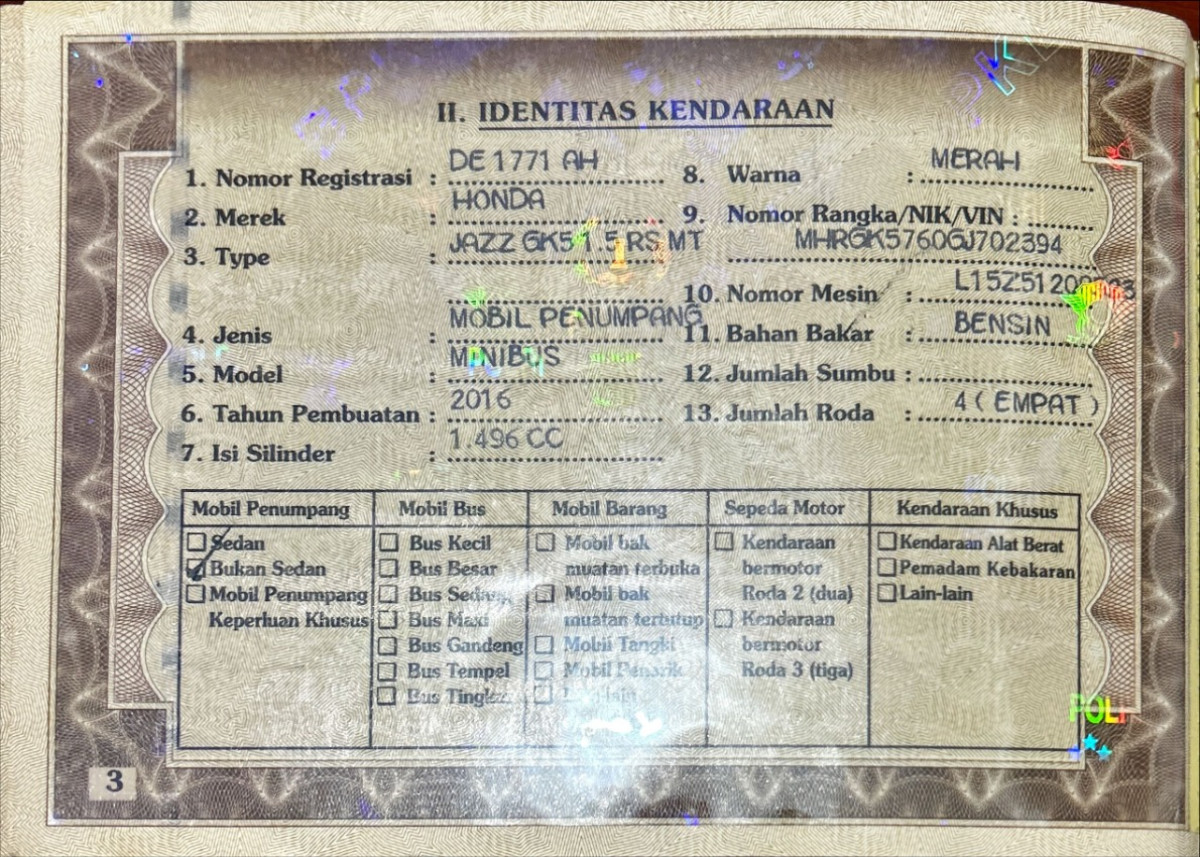 II. IDENTITAS KENDARAAN
1. Nomor Registrasi : DE 1771 AH
2. Merek : HONDA
3. Type : JAZZ GK5 1.5 RS MT
4. Jenis : MOBIL PENUMPANG
5. Model : MINIBUS
6. Tahun Pembuatan : 2016
7. Isi Silinder : 1.496 CC
8. Warna : MERAH
9. Nomor Rangka/NIK/VIN :
MHRGK5760GJ702394
10. Nomor Mesin :
11. Bahan Bakar : BENSIN
12. Jumlah Sumbu :
13. Jumlah Roda : 4 ( EMPAT )
Mobil Penumpang
Sedan
Bukan Sedan
Mobil Penumpang
Keperluan Khusus
Mobil Bus
Bus Kecil
Bus Besar
Bus Sedang
Bus Maxi
Bus Gandeng
Bus Tempel
Bus Tingkat
Mobil Barang
Mobil bak
muatan terbuka
Mobil bak
muatan tertutup
Mobil Tangki
Mobil Penarik
Sepeda Motor
Kendaraan
bermotor
Roda 2 (dua)
Kendaraan
bermotor
Roda 3 (tiga)
Kendaraan Khusus
Kendaraan Alat Berat
Pemadam Kebakaran
Lain-lain
POLI
3